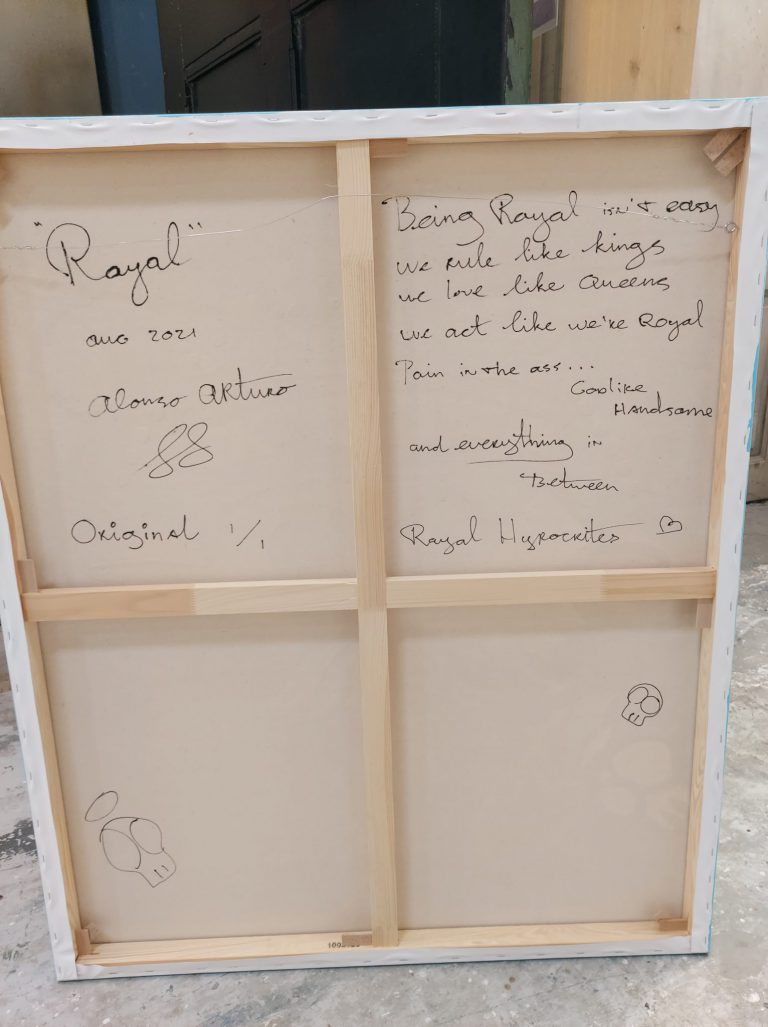 "Royal"
aug 2021
Alonzo Arturo
Original 1/1
"Being Royal isn't easy
we rule like kings
we love like Queens
we act like we're Royal
Pain in the ass...
Godlike
Handsome
and everything in
Between
Royal Hypocrites